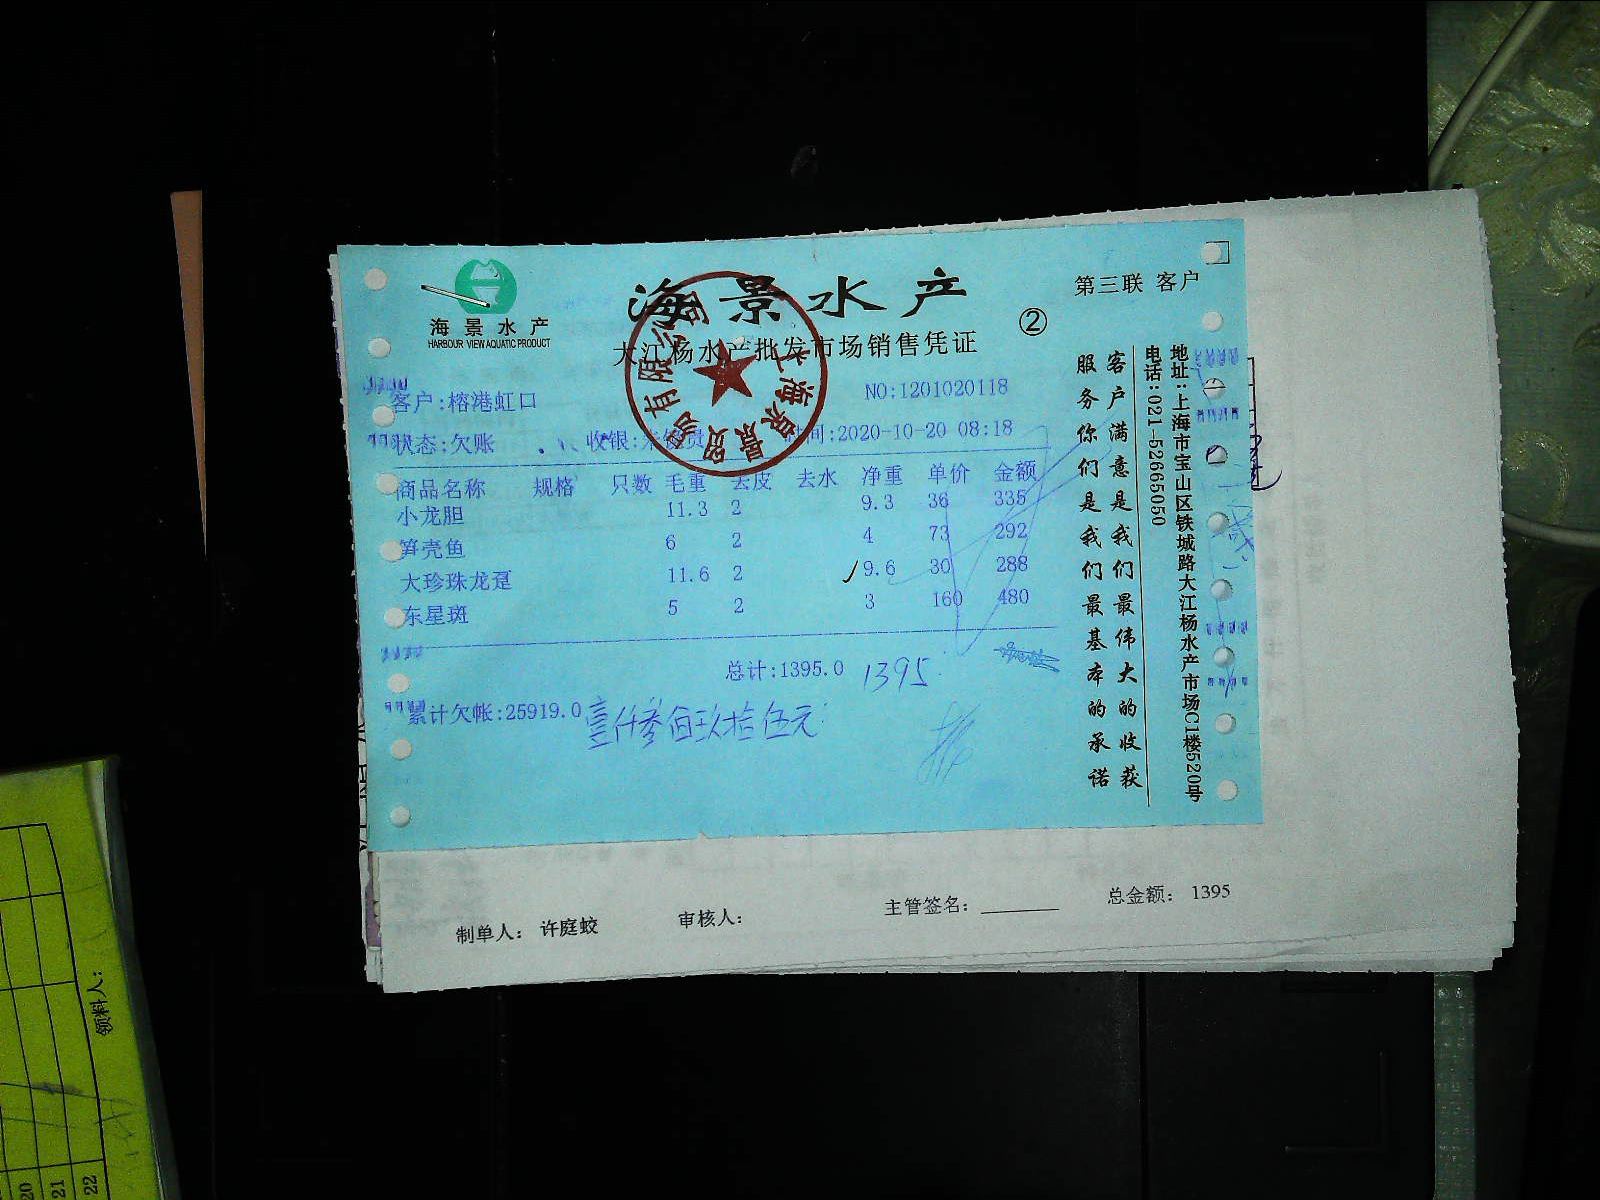 海景水产
HARBOUR VIEW AQUATIC PRODUCT
海景水产
大江杨水产批发市场销售凭证
②
第三联 客户
客户:榕港虹口
NO:1201020118
状态:欠账
收银:
时间:2020-10-20 08:18
商品名称 规格 只数 毛重 去皮 去水 净重 单价 金额
小龙胆 11.3 2 9.3 36 335
笋壳鱼 6 2 4 73 292
大珍珠龙趸 11.6 2 9.6 30 288
东星斑 5 2 3 160 480
总计:1395.0 1395
累计欠帐:25919.0 壹仟叁佰玖拾伍元
客户满意是我们最伟大的收获
服务你们是我们最基本的承诺
地址:上海市宝山区铁城路大江杨水产市场C1楼520号
电话:021-52665050
制单人: 许庭蛟 审核人: 主管签名: 总金额: 1395
领料人:
20
21
22